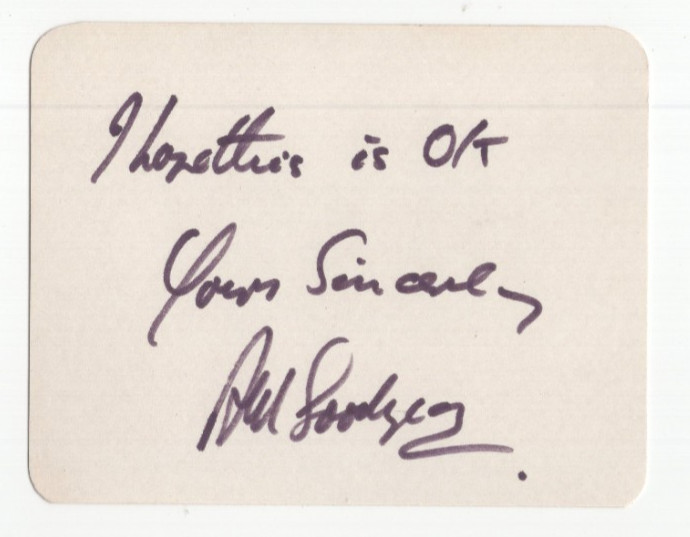 I hope this is OK
Yours Sincerely